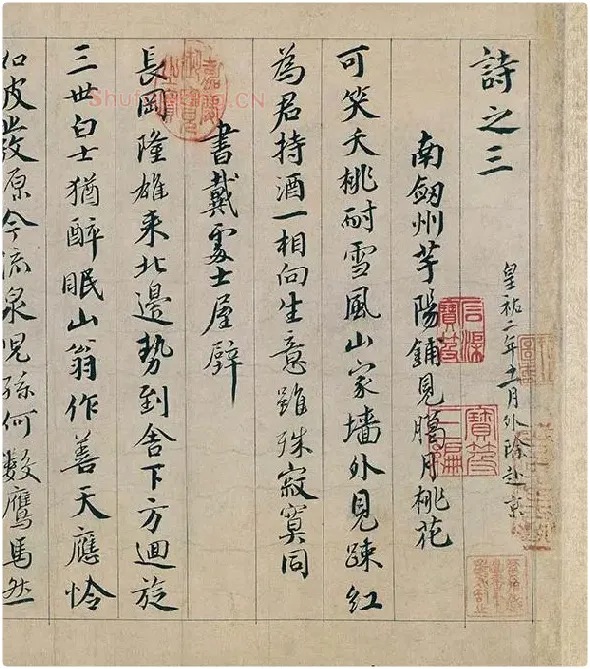 詩之三
皇祐二年十一月外除赴京
南劒州芋陽鋪見臘月桃花
可笑夭桃耐雪風山家墻外見疎紅
為君持酒一相向生意雖殊寂寞同
書戴處士屋壁
長岡隆雄來北邊勢到舍下方迴旋
三世白士猶醉眠山翁作善天應憐
如彼發原今流泉兒孫何數鷹馬然
嘉慶御覽之寶
石渠寶笈
寶笈三編